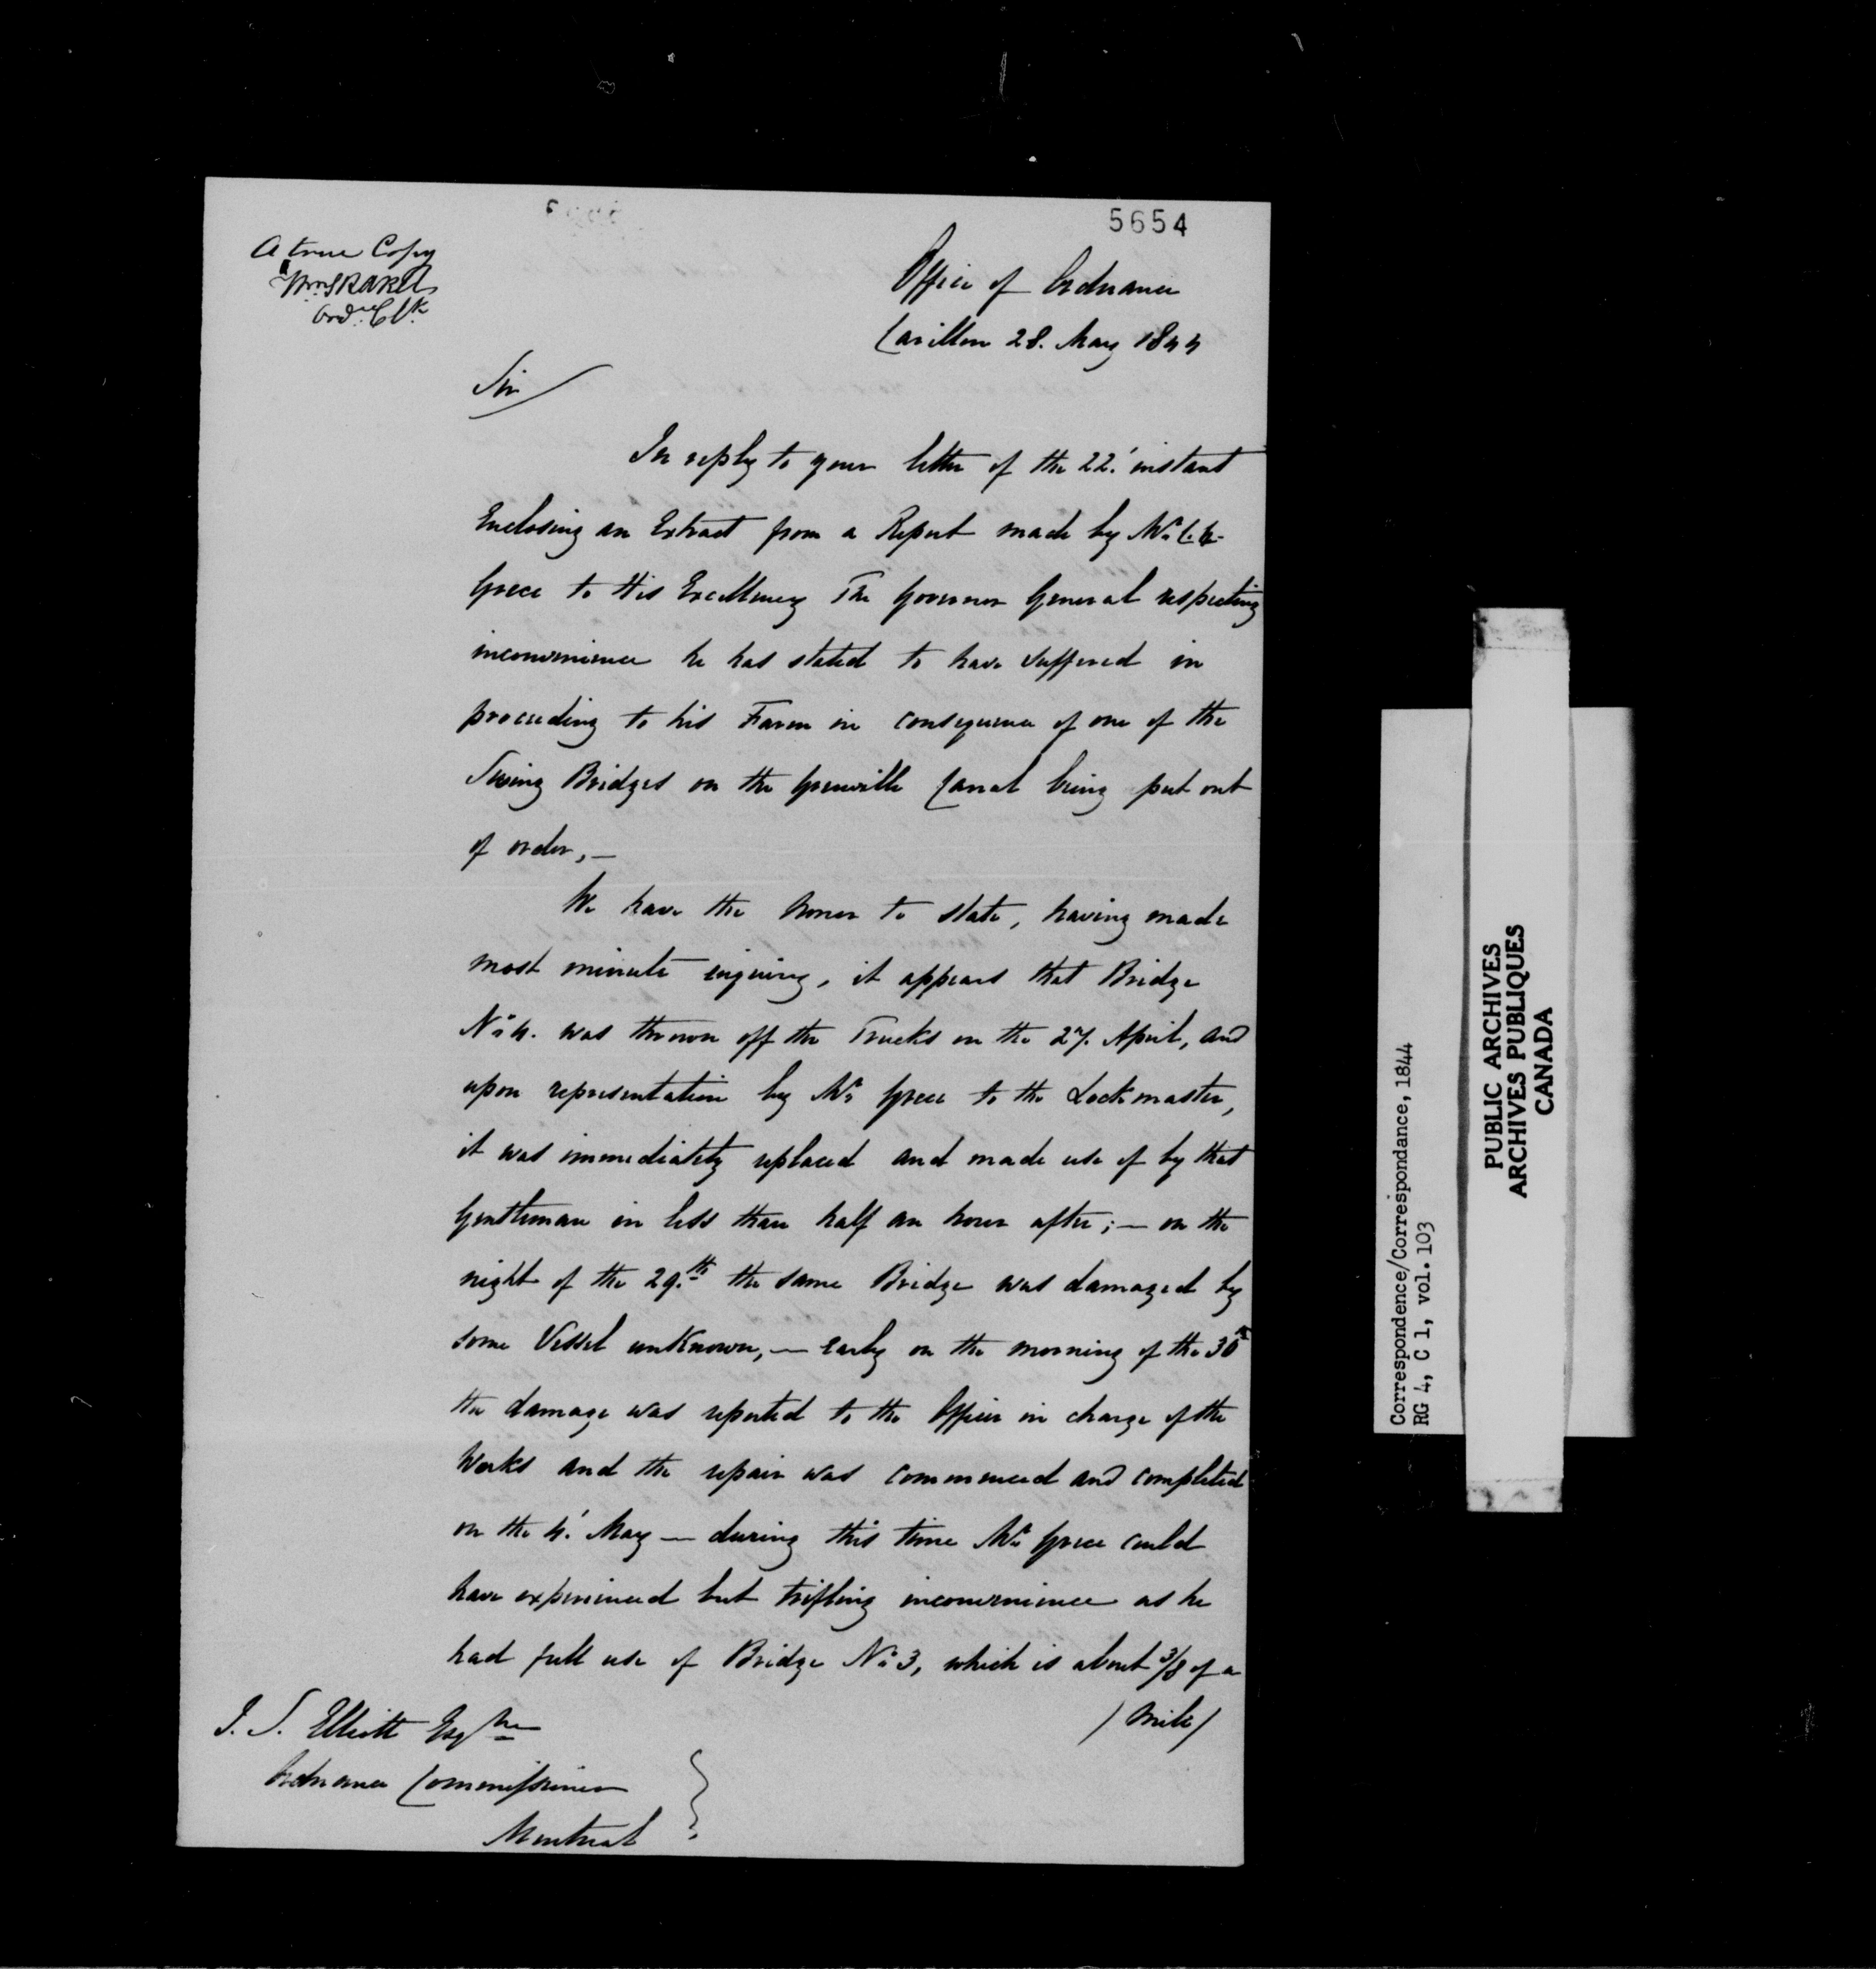 5654
A true Copy
Ord^ce Clk
Office of Ordnance
Carillon 28. May 1844
Sir
In reply to your letter of the 22.' instant
Enclosing an Extract from a Report made by Mr. C.
Grece to His Excellency The Governor General respecting
inconvenience he has stated to have suffered in
proceeding to his Farm in consequence of one of the
Swing Bridges on the Grenville Canal being put out
of order, —
We have the honor to state, having made
most minute enquiry, it appears that Bridge
No. 4. was thrown off the Trucks on the 27. April, and
upon representation by Mr. Grece to the Lockmaster,
it was immediately replaced and made use of by that
Gentleman in less than half an hour after; — on the
night of the 29.th the same Bridge was damaged by
some Vessel unKnown, — early on the morning of the 30th
the damage was reported to the Officer in charge of the
Works and the repair was commenced and completed
on the 4.' May — during this time Mr. Grece could
have experienced but trifling inconvenience as he
had full use of Bridge No. 3, which is about 3/8 of a
/ Mile /
J. S. Elliott Esqre
Ordnance Commissioner
Montreal
Correspondence/Correspondance, 1844
RG 4, C 1, vol. 103
PUBLIC ARCHIVES
ARCHIVES PUBLIQUES
CANADA